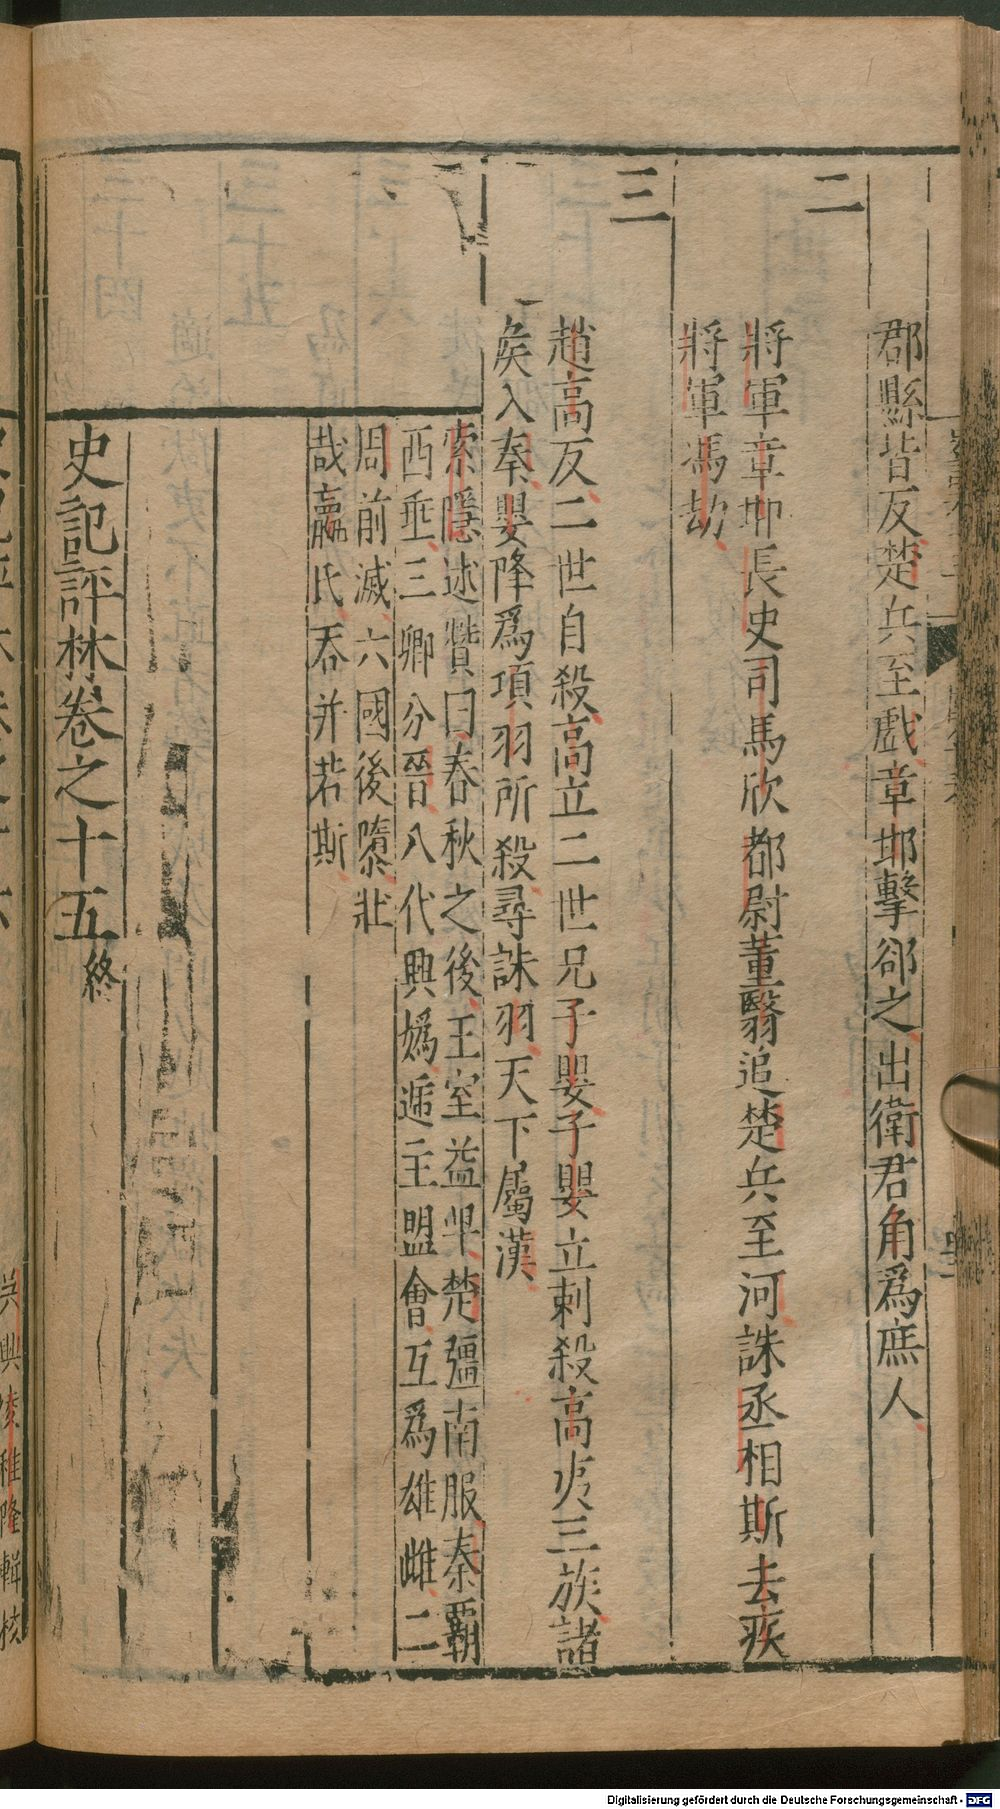 郡縣皆反楚兵至戲章邯擊卻之出衛君角爲庶人
二
將軍章邯長史司馬欣都尉董翳追楚兵至河誅丞相斯去疾
將軍馮劫
三
趙高反二世自殺高立二世兄子嬰子嬰立刺殺高夷三族諸
矦入秦嬰降爲項羽所殺尋誅羽天下屬漢
索隱述贊曰春秋之後王室益卑楚彊南服秦霸
西垂三卿分晉八代興嬀遞主盟會互爲雄雌二
周前滅六國後隳壯
哉嬴氏吞并若斯
史記評林卷之十五終
吳興凌稚隆輯校
Digitalisierung gefördert durch die Deutsche Forschungsgemeinschaft - DFG